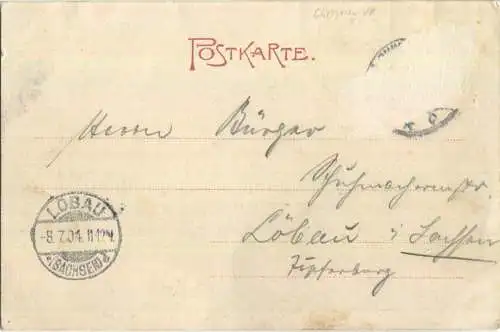 POSTKARTE.
Herrn Bürger
Schuhmachermstr.
Löbau i Sachsen
LÖBAU
-8.7.04. 11-12V.
(SACHSEN)